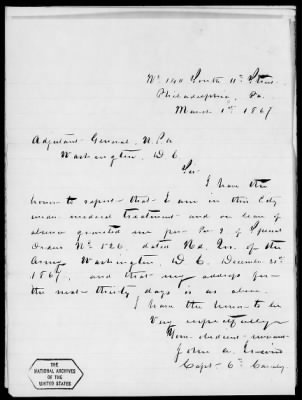 No 140 South 11th Street
Philadelphia, Pa.
March 1st 1867
Adjutant General, U.S.A
Washington, D.C.
Sir
I have the
honor to report that I am in this City
under medical treatment and on leave of
absence granted me per Par 3 of Special
Orders No 526, dated Hd. Qrs. of the
Army, Washington, D.C. December
1867, and that my address for
the next thirty days is as above.
I have the honor to be
Very respectfully
Your obedient servant
John A. Irwin
Capt. 6th Cavalry
THE
NATIONAL ARCHIVES
OF THE
UNITED STATES